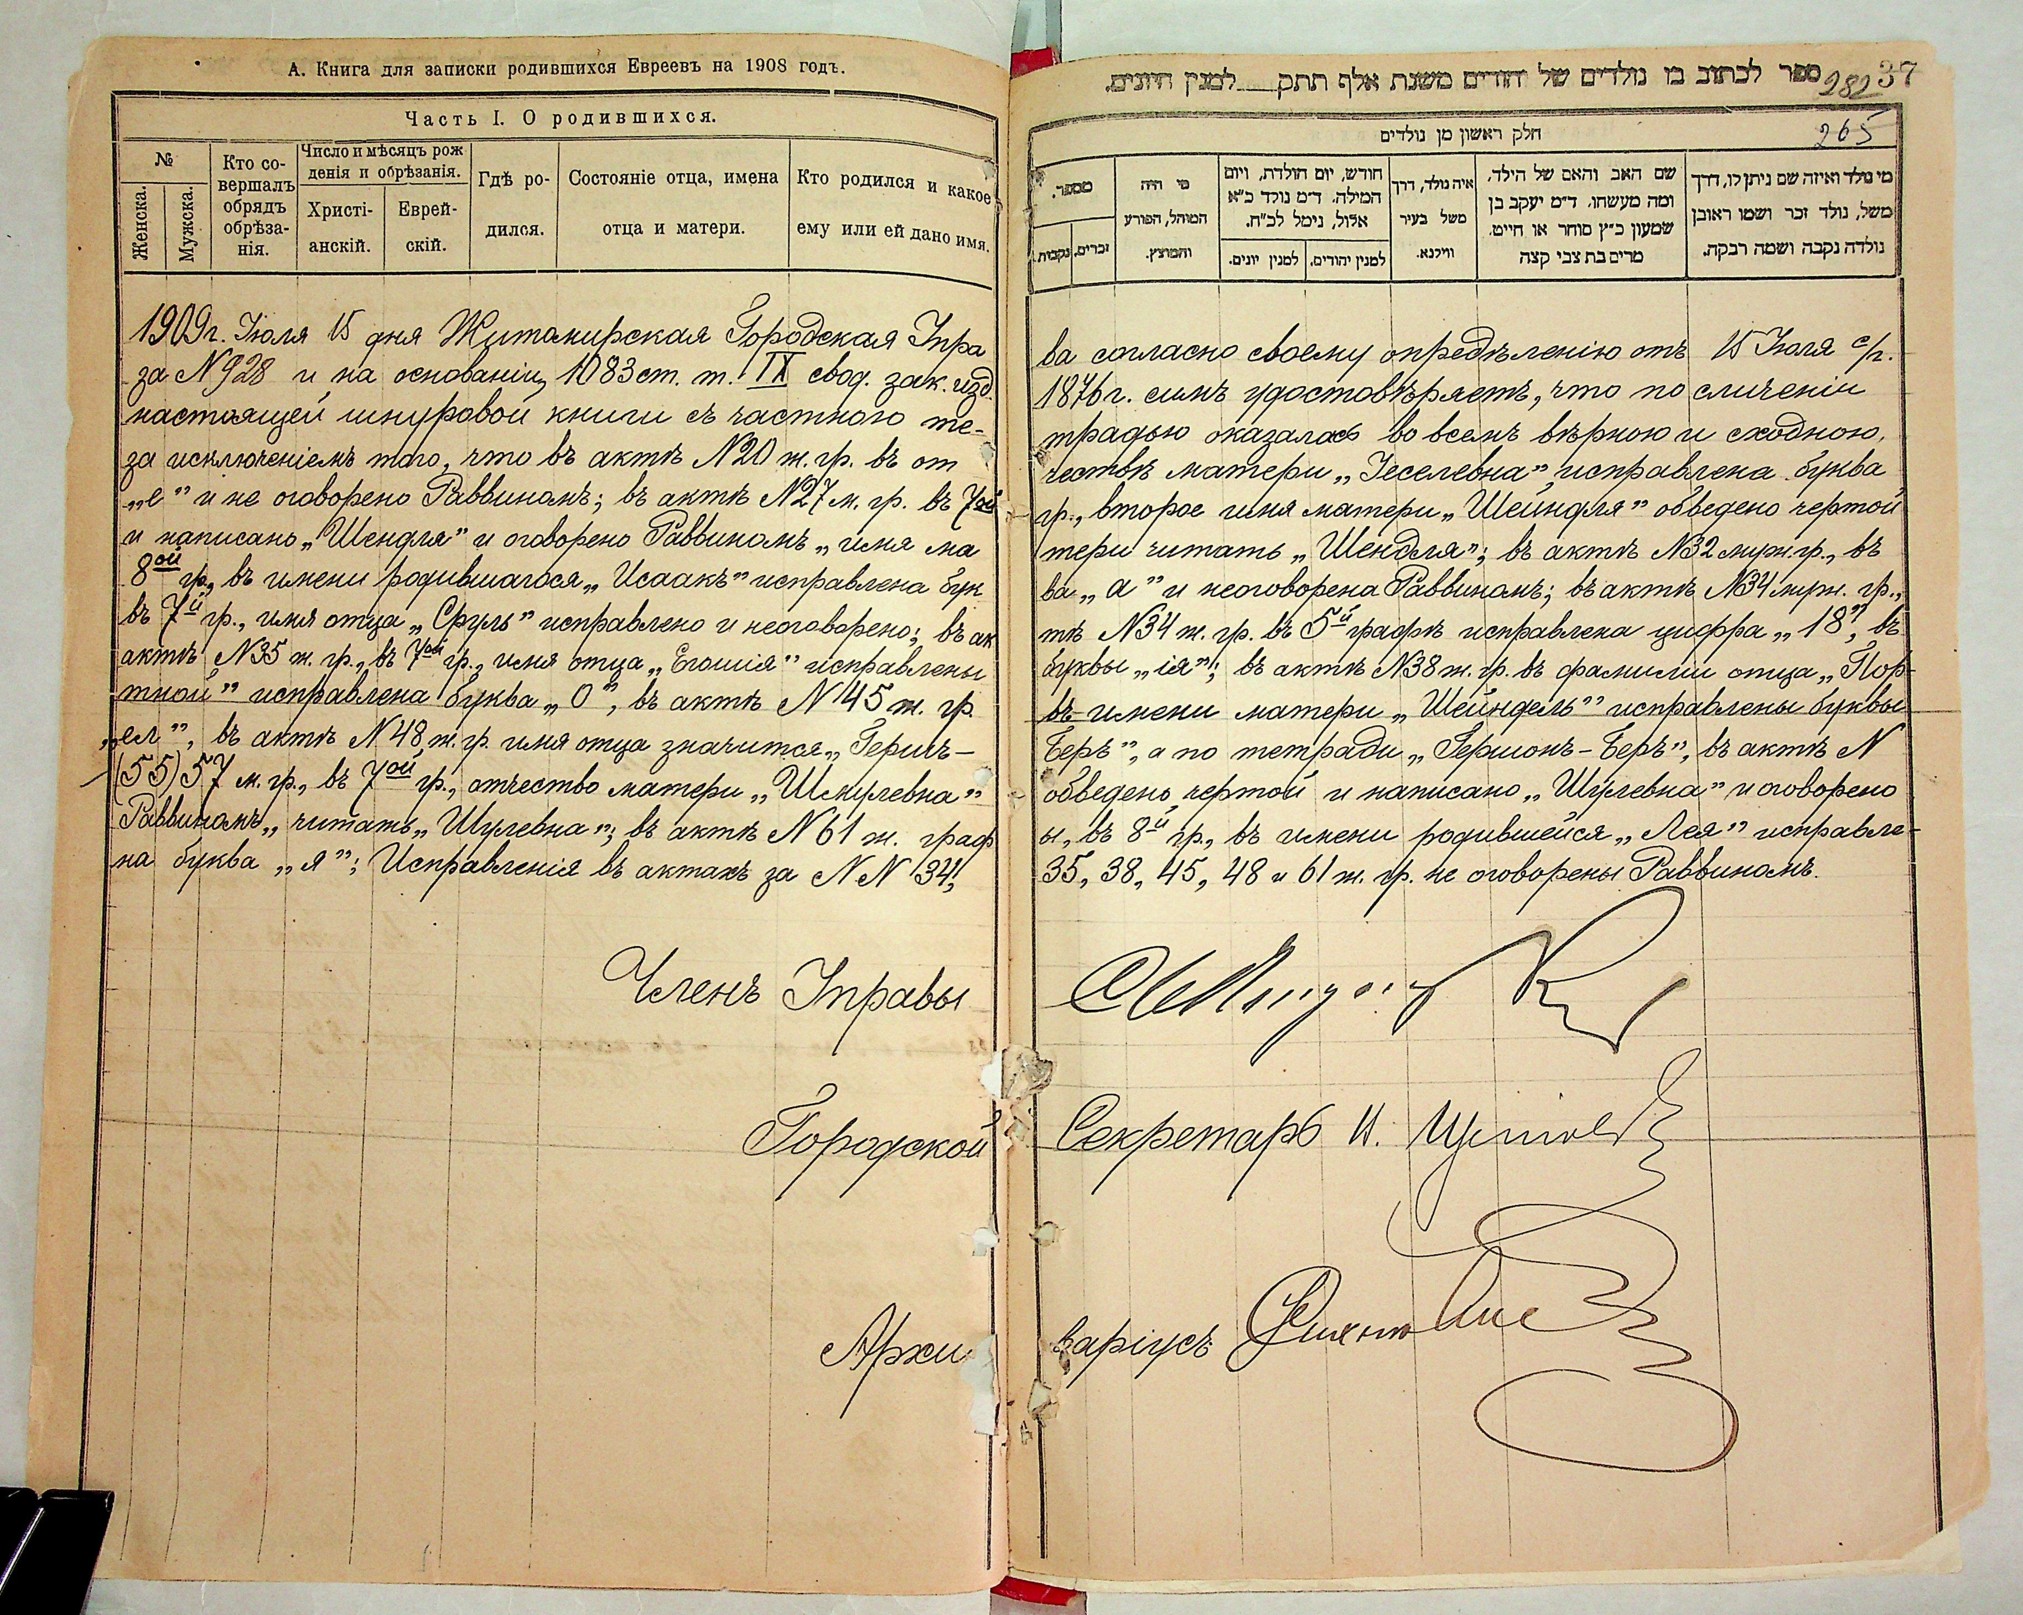 А. Книга для записки родившихся Евреевъ на 1908 годъ.
Часть I. О родившихся.
№
Женска.
Мужска.
Кто со-
вершалъ
обрядъ
обрѣза-
нія.
Число и мѣсяцъ рож
денія и обрѣзанія.
Христі-
анскій.
Еврей-
скій.
Гдѣ ро-
дился.
Состояніе отца, имена
отца и матери.
Кто родился и какое
ему или ей дано имя.
1909 г. Іюля 15 дня Житомирская Городская Упра
за N 928 и на основаніи 1083 ст. т. IX свод. зак. изд.
настоящей шнуровой книги съ частного те-
за исключеніемъ того, что въ актѣ N20 ж. гр. въ от
„е" и не оговорено Раввиномъ; въ актѣ N27 м. гр. въ 7ой
и написано „Шендля" и оговорено Раввиномъ „имя ма
8ой гр., въ имени родившагося „Исаакъ" исправлена бук
въ 7й гр., имя отца „Сруль" исправлено и неоговорено; въ ак
актѣ N35 ж. гр., въ 7ой гр., имя отца „Егошія" исправлены
тной" исправлена буква „О", въ актѣ N 45 ж. гр.
„ел", въ актѣ N 48 ж. гр. имя отца значится „Гершъ-
(55) 57 м. гр., въ 7ой гр., отчество матери „Шмулевна"
Раввиномъ „читать „Шулевна"; въ актѣ N 61 ж. граф
на буква „я"; Исправленія въ актахъ за NN 34,
Членъ Управы
Городской
Архи
ספר לכתוב בו נולדים של יהודים משנת אלף תתק למנין היונים.
282
37
265
חלק ראשון מן נולדים
מספר.
זכרים.
נקבות.
מי היה
המוהל, הפורע
והמוצץ.
חודש, יום הולדת, ויום
המילה. ד״מ נולד כ״א
אלול, נימל לכ״ח.
למנין יהודים.
למנין יונים.
איה נולד, דרך
משל בעיר
ווילנא.
שם האב והאם של הילד,
ומה מעשהו. ד״מ יעקב בן
שמעון כ״ץ סוחר או חייט.
מרים בת צבי קצה
מי נולד ואיזה שם ניתן לו, דרך
משל, נולד זכר ושמו ראובן
נולדה נקבה ושמה רבקה.
ва согласно своему опредѣленію отъ 15 Іюля с/г.
1876 г. симъ удостовѣряетъ, что по сличеніи
традью оказалась во всемъ вѣрною и сходною,
чествѣ матери „Іеселевна" исправлена буква
гр., второе имя матери „Шейндля" обведено чертой
тери читать „Шендля"; въ актѣ N32 муж. гр., въ
ва „а" и неоговорена Раввиномъ; въ актѣ N34 муж. гр.,
тѣ N34 ж. гр. въ 5й графѣ исправлена цифра „18", въ
буквы „ія"; въ актѣ N38 ж. гр. въ фамиліи отца „Пор-
въ имени матери „Шейндель" исправлены буквы
Беръ", а по тетради „Гершонъ-Беръ", въ актѣ N
обведено чертой и написано „Шулевна" и оговорено
ы, въ 8й гр., въ имени родившейся „Лея" исправле-
35, 38, 45, 48 и 61 ж. гр. не оговорены Раввиномъ.
Секретарь И.
варіусъ